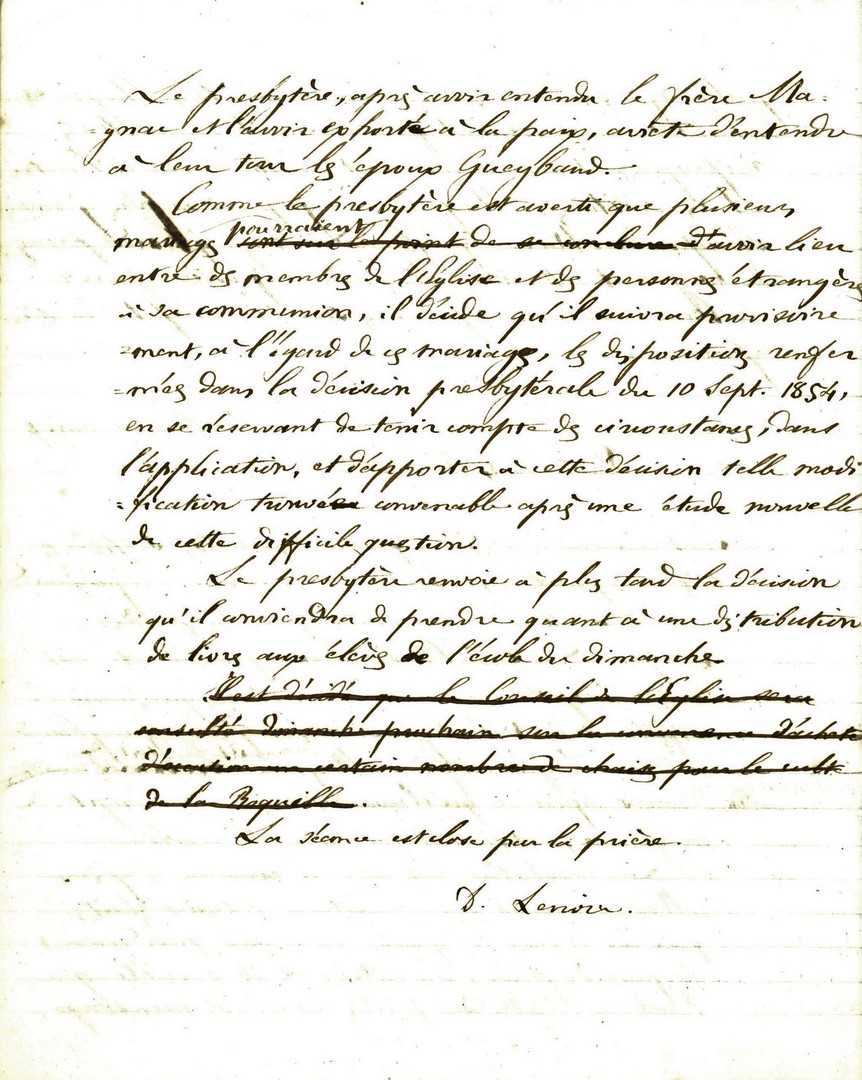 Le presbytère, après avoir entendu le frère Ma-
-gnac et l'avoir exhorté à la paix, arrête d'entendre
à leur tour les époux Gueyband.
Comme le presbytère est averti que plusieurs
pourraient
mariages sont sur le point de se conclure d'avoir lieu
entre des membres de l'Eglise et des personnes étrangères
à sa communion, il décide qu'il suivra provisoire
=ment, à l'égard de ces mariages, les dispositions renfer
=mées dans la décision presbytérale du 10 Sept. 1854,
en se réservant de tenir compte des circonstances, dans
l'application, et d'apporter à cette décision telle modi
=fication trouvée convenable après une étude nouvelle
de cette difficile question.
Le presbytère renvoie à plus tard la décision
qu'il conviendra de prendre quant à une distribution
de livres aux élèves de l'école du dimanche.
Il est décidé que le Conseil de l'Eglise sera
consulté dimanche prochain sur la convenance d'acheter
d'occasion un certain nombre de chaises pour le culte
de la
La séance est close par la prière.
D. Lenoir.